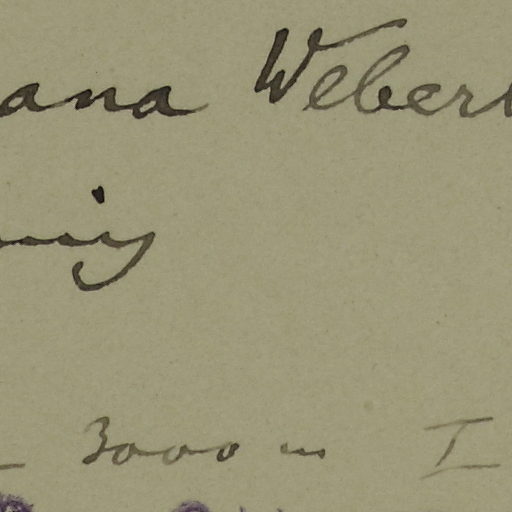 ana Weber
3000 m I